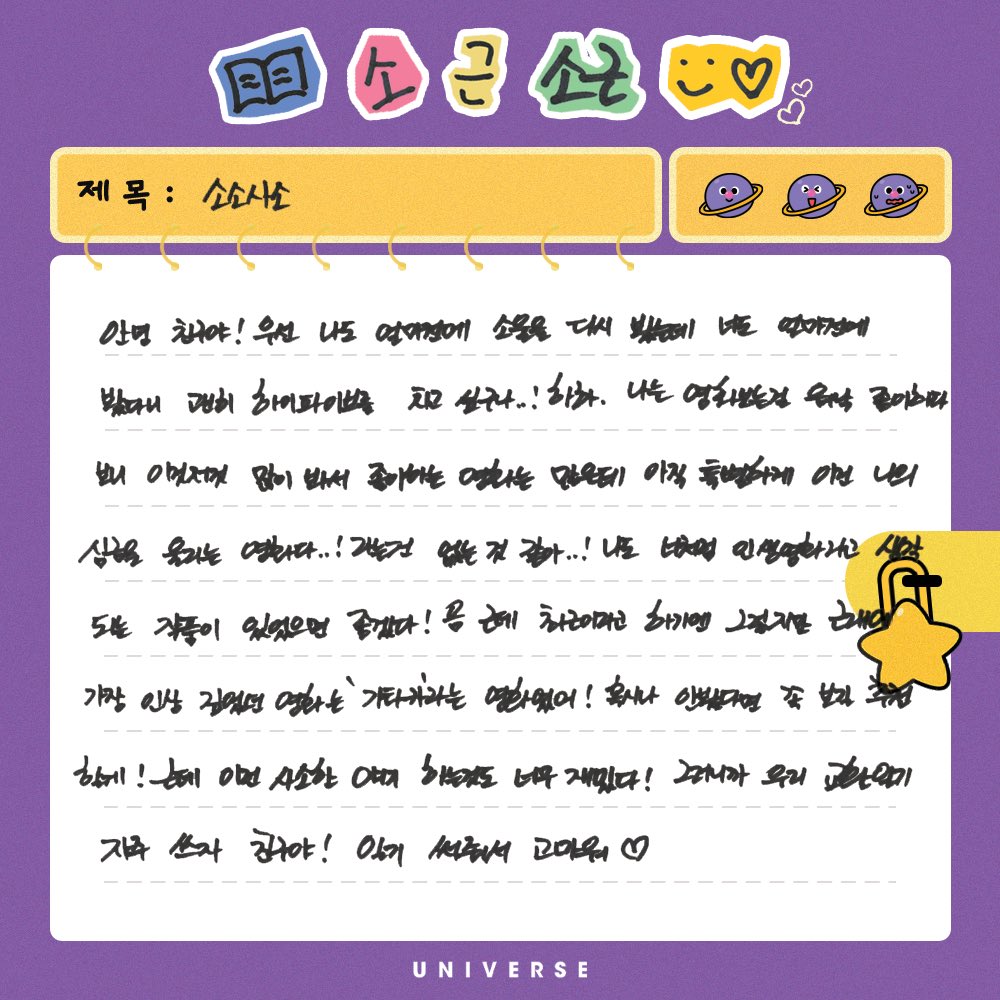 소근 소근
제목 : 소소시소
안녕 친구야! 우선 나도 얼마전에 소울을 다시 봤는데 너도 얼마전에
봤다니 괜히 하이파이브를 치고 싶구나..! 하하. 나는 영화보는걸 워낙 좋아하다
보니 이것저것 많이 봐서 좋아하는 영화는 많은데 아직 특별하게 이건 나의
심금을 울리는 영화다..! 라는건 없는 것 같아..! 나도 너처럼 인생영화라고 생각
되는 작품이 있었으면 좋겠다! 흠 근데 최근이라고 하기엔 그렇지만 근래에
가장 인상 깊었던 영화는 '가타카'라는 영화였어! 혹시나 안봤다면 꼭 보길 추천
할게! 근데 이런 사소한 얘기 하는것도 너무 재밌다! 그러니까 우리 교환일기
자주 쓰자 친구야! 일기 써줘서 고마워 ♡
UNIVERSE